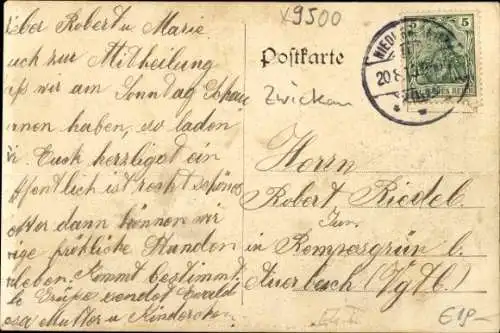 x9500
Postkarte
Zwickau
5
20.8.
ieber Robert u. Marie.
uch zur Mittheilung
ß wir am Sonntag
rnen haben, so laden
ir Euch herzligst ein
ffentlich ist recht schönes
etter dann können wir
ige fröhliche Stunden
rleben. Kommt bestimmt.
Grüße sendet Ewald
Mutter u. Kinderchen
Herrn
Robert Riedel.
Jun.
in Rempesgrün b.
Auerbach (Vgtl.)
€19-